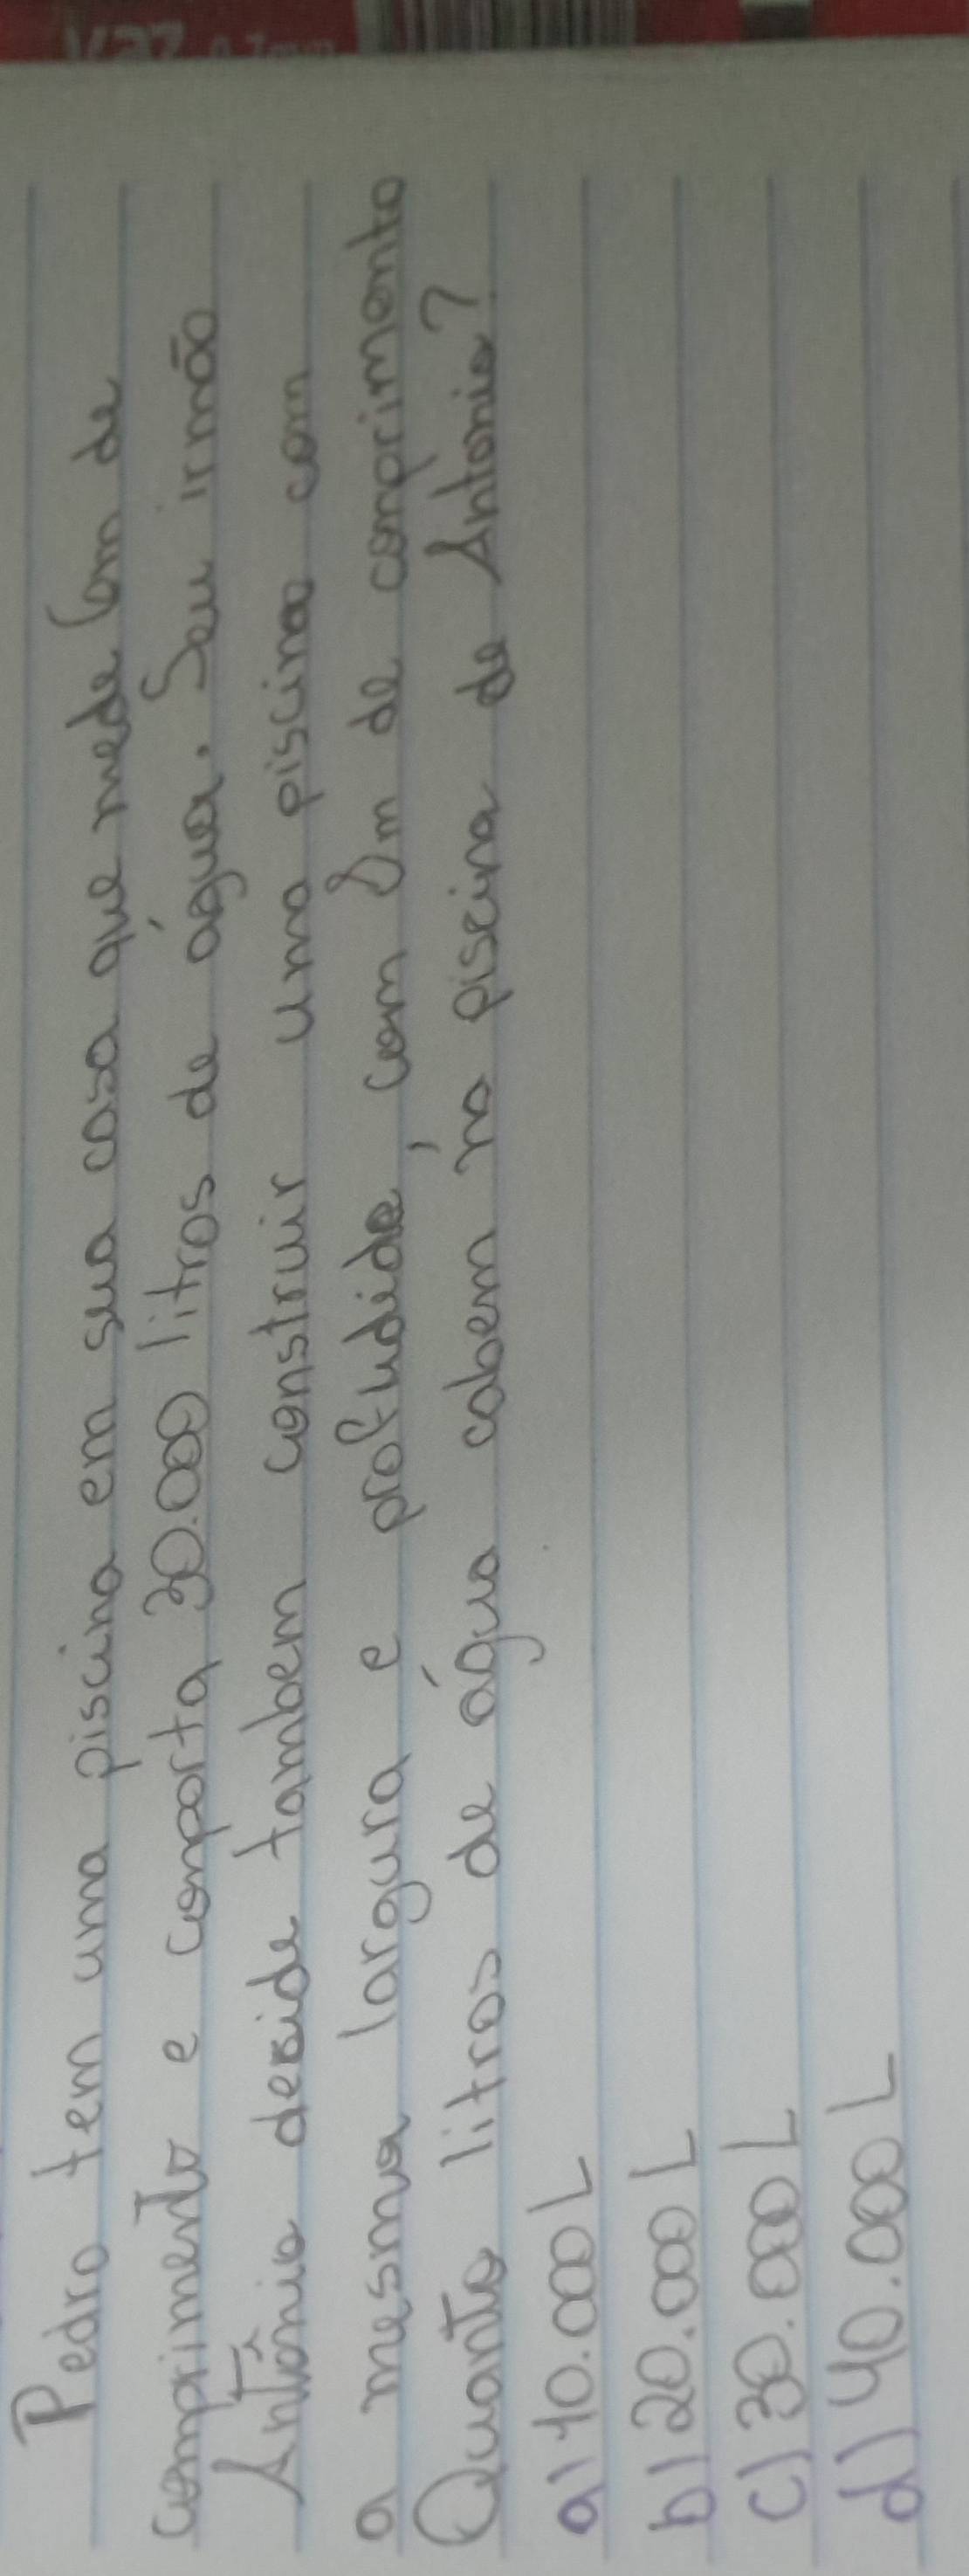 Pedro tem uma piscina em sua casa que mede 6m de
comprimento e comporta 30.000 litros de água. Seu irmão
Antônio deside tambem construir uma piscina com
a mesma largura e profudide, com 8m de comprimento
Quanto litros de água cabem na piscina de Antonio?
a) 10.000 L
b) 20.000 L
c) 30.000 L
d) 40.000 L